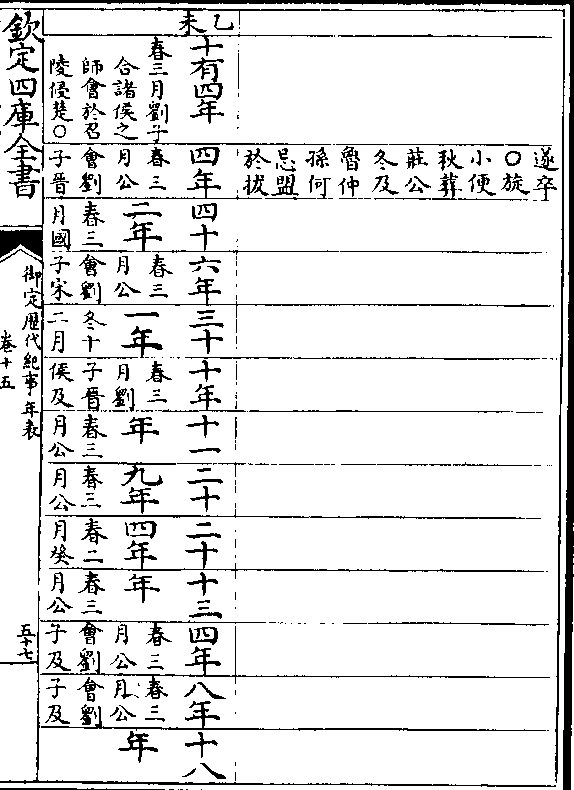 遂卒
○旋
小便
秋葬
莊公
冬及
魯仲
孫何
忌盟
於拔
乙未
十有四年
春三月劉子
合諸侯之
師會於召
陵侵楚○
四年
春三
月公
會劉
子晉
四十
二年
春三
月國
六年
春三
月公
會劉
子宋
三十
一年
冬十
二月
十年
春三
月劉
子晉
侯及
十一
年
春三
月公
二十
九年
春三
月公
二十
四年
春二
月癸
十三
年
春三
月公
四年
春三
月公
會劉
子及
八年
春三
月公
會劉
子及
十八
年
欽定四庫全書
御定歷代紀事年表
卷十五
五十七